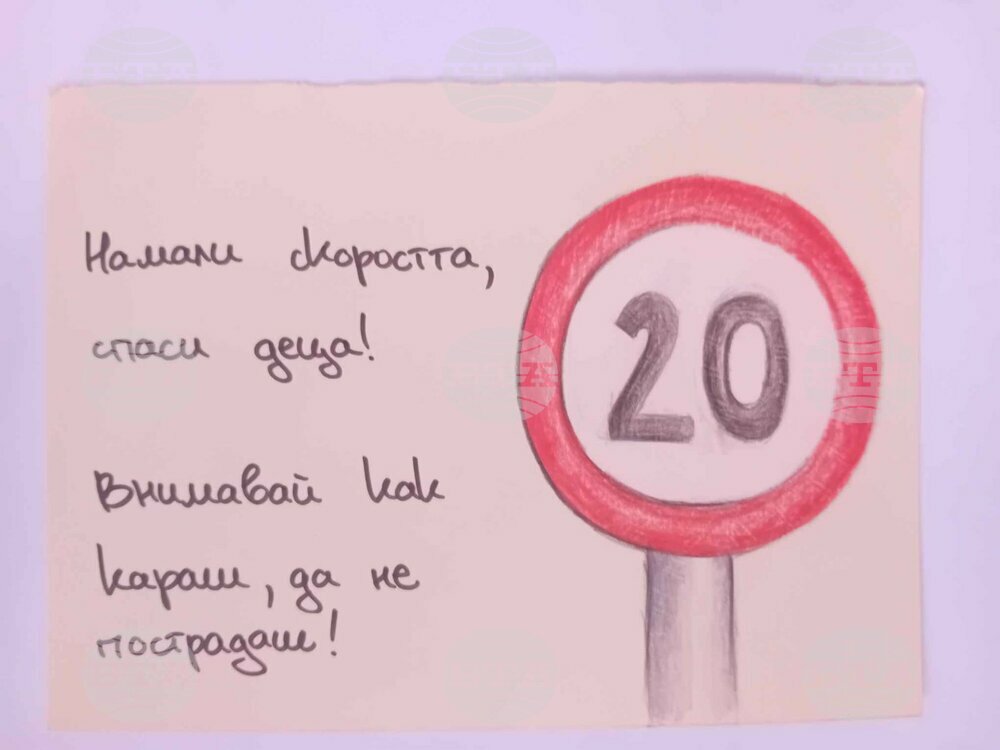 Намали скоростта,
спаси деца!
Внимавай как
караш, да не
пострадаш!
20